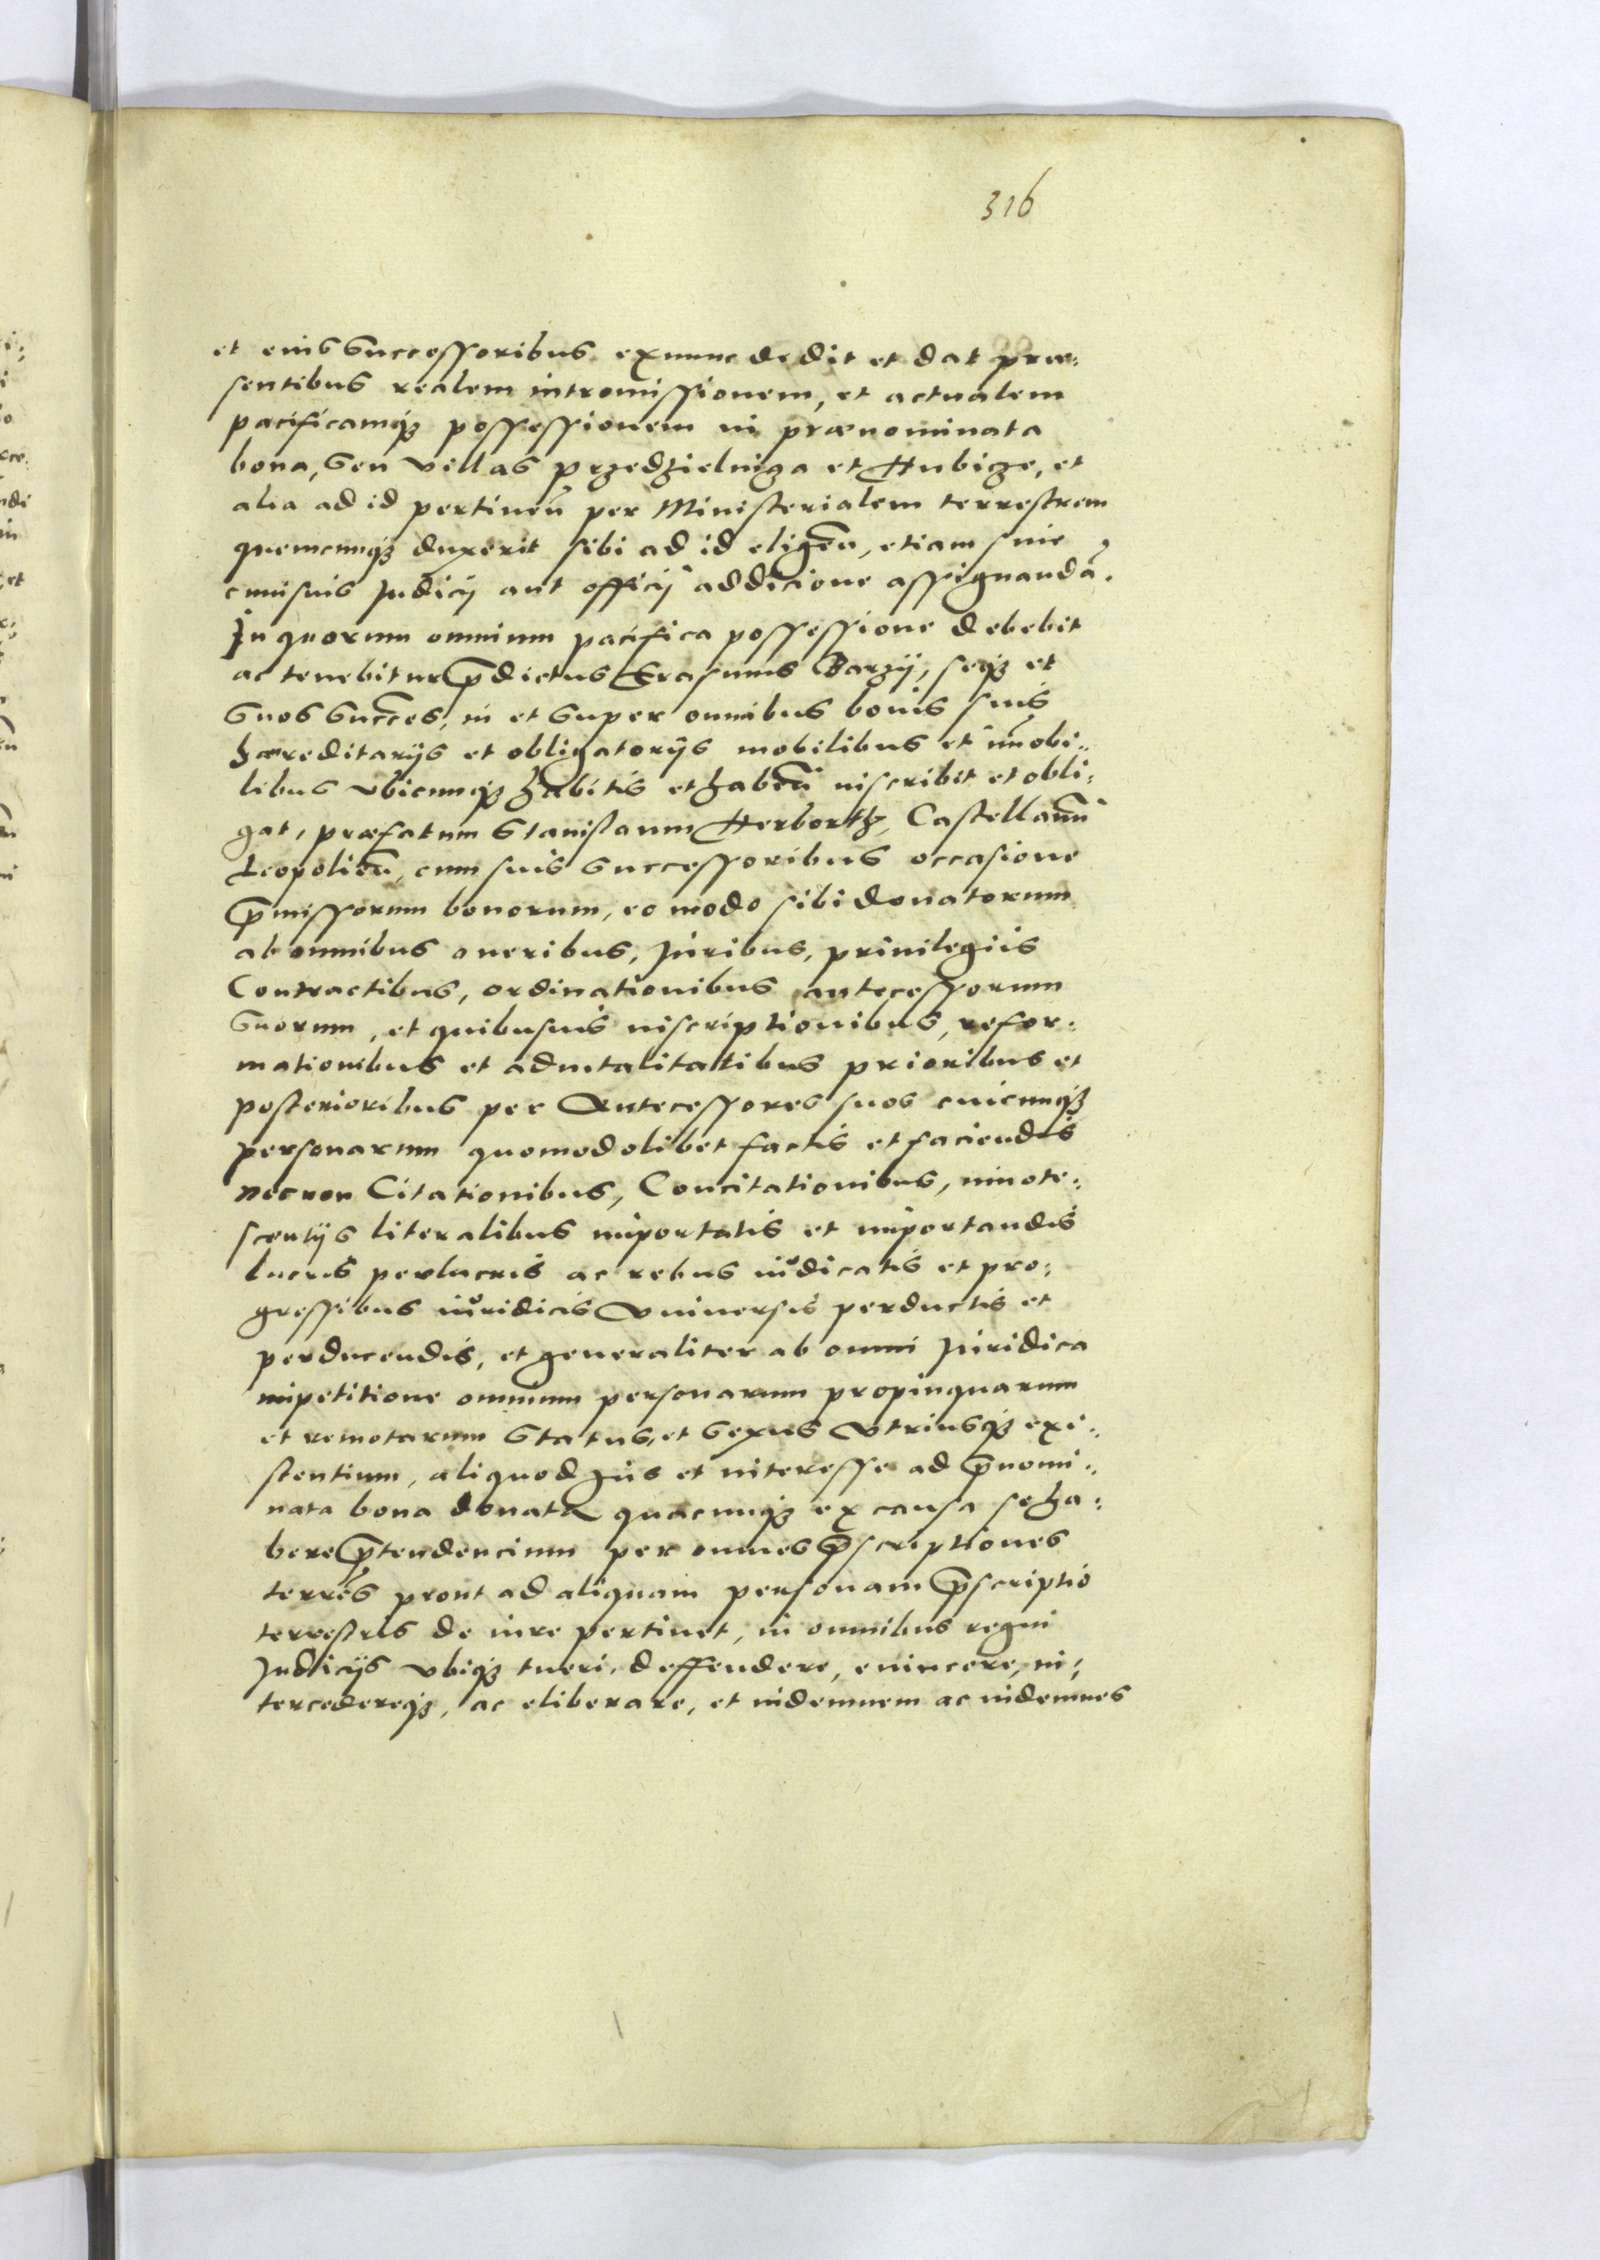 316
et eius Successoribus exnunc dedit et dat præ:
sentibus realem intromissionem, et actualem
pacificamq₃ possessionem in prænominata
bona, Seu villas przedzielniga et Hubicze, et
alia ad id pertineñ per Ministerialem terrestrem
quemcunq₃ duxerit sibi ad id eligeñ, etiam sine
cuiusuis Judicij aut officij addicione assignandã.
In quorum omnium pacifica possessione debebit
ac tenebitur p̃dictus Erasmus Barzij, seq₃ et
Suos Succes̃, in et Super omnibus bonis suis
hæreditarijs et obligatorijs mobilibus et im̃obi:
libus vbicunq₃ habitis et habeñ inscribit et obli:
gat, præfatum Stanislaum Herborth, Castellanũ
Leopolieñ, cum suis Successoribus occasione
p̃missorum bonorum, eo modo sibi donatorum
ab omnibus oneribus, Juribus, priuilegiis
Contractibus, ordinationibus antecessorum
Suorum, et quibusuis inscriptionibus, refor:
mationibus et aduitalitatibus prioribus et
posterioribus per Antecessores suos cuicunq₃
personarum quomodolibet factis et faciendis
necnon Citationibus, Concitationibus, innote:
scentijs literalibus importatis et importandis
lucris perlucris ac rebus iudicatis et pro:
gressibus iuridicis Vniuersis perductis et
perducendis, et generaliter ab omni Juridica
impetitione omnium personarum propinquarum
et remotarum Status, et Sexus Vtriusq₃ exi:
stentium, aliquod Jus et interesse ad p̃nomi:
nata bona donata quacunq₃ ex causa se ha:
bere p̃tendencium per omnes p̃scriptiones
terreẽs prout ad aliquam personam p̃scriptio
terrestris de iure pertinet, in omnibus regni
Judicijs vbiq₃ tueri, deffendere, euincere, in:
tercedereq₃, ac eliberare, et indemnem ac indemnes